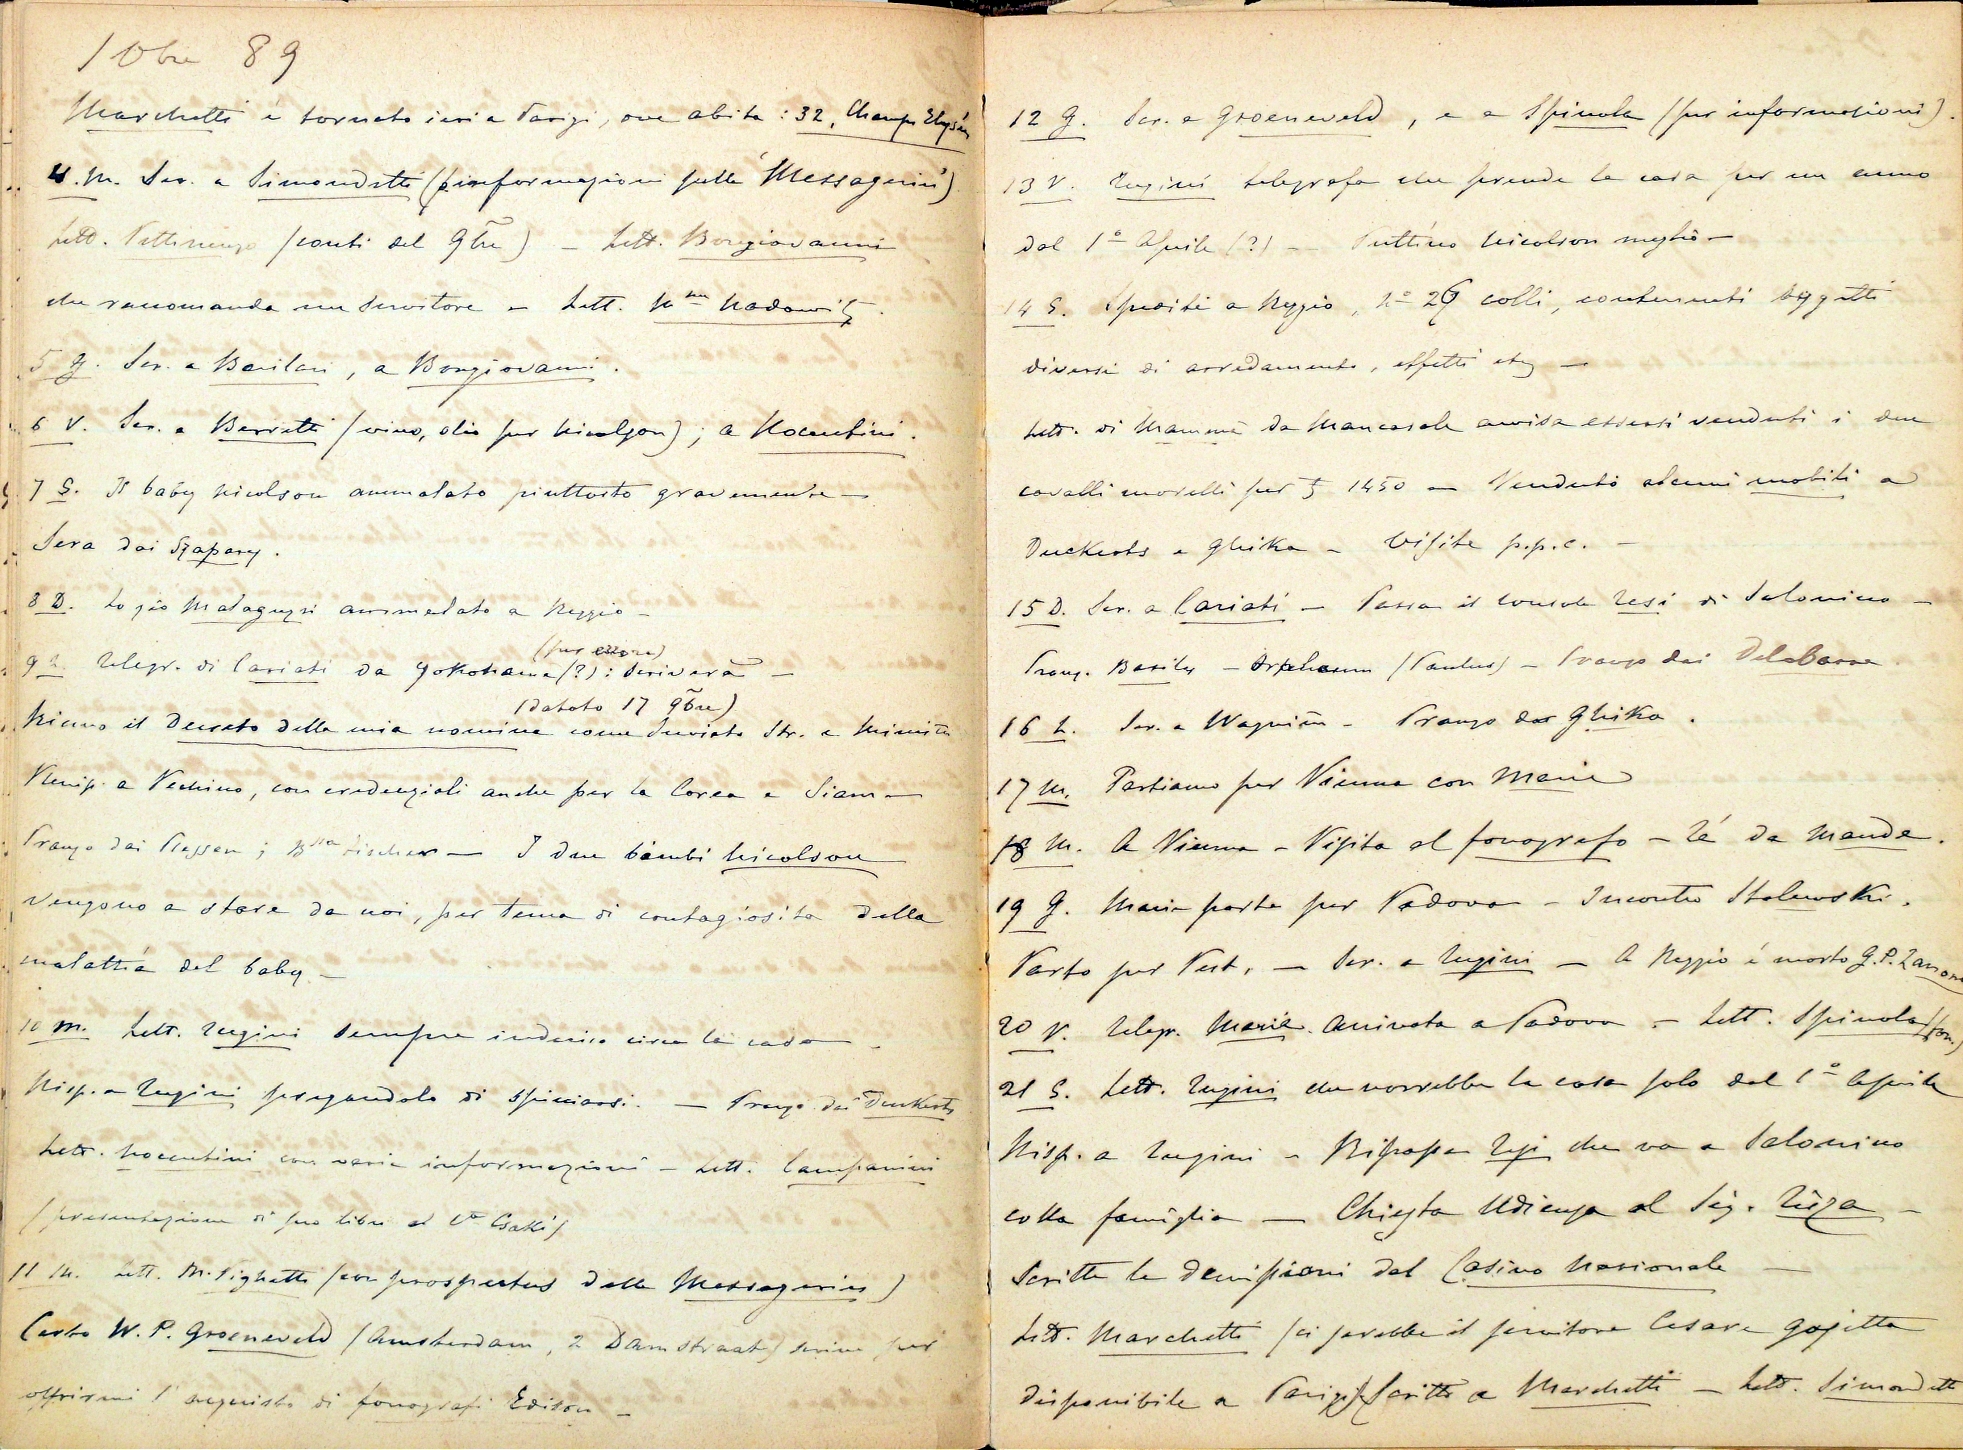 10bre 89
Marchetti è tornato ieri a Parigi, ove abita : 32, Champs Elysées
4. M. Scr. a Simondetti (p. informazioni sulle "Messageries")
Lett. Pettinengo (conti del 9bre) — Lett. Bongiovanni
che raccomanda un servitore — Lett. Mme Nadowitz.
5 G. Scr. a Barilari, a Bongiovanni.
6 V. Scr. a Berretti (vino, olio per Nicolson); a Nocentini.
7 S. Il baby Nicolson ammalato piuttosto gravemente —
Sera dai Szapary.
8 D. Lo zio Malaguzzi ammalato a Reggio —
9 L. Telegr. di Cariati da Yokohama (?) : scriverà —
(per errore)
(datato 17 9bre)
Ricevo il Decreto della mia nomina come Inviato Str. e Ministro
Plenip. a Pechino, con credenziali anche per la Corea e Siam —
Pranzo dai Plessen ; Bssa Fischer — I due bambi Nicolson
vengono a stare da noi, per tema di contagiosità della
malattia del baby —
10 M. Lett. Zugini sempre indeciso circa la casa —
Risp. a Zugini pregandolo di spicciarsi. — Pranzo dai Duckerts
Lett. Nocentini con varie informazioni — Lett. Campanini
(presentazione di suo libro al Cte Csaki)
11 M. Lett. M. Pighetti (con prospectus delle Messageries)
Certo W. P. Groeneveld (Amsterdam, 2 Damstraat) scrive per
offrirmi l'acquisto di fonografi Edison —
12 G. Scr. a Groeneveld, e a Spinola (per informazioni).
13 V. Zugini telegrafa che prende la casa per un anno
dal 1o Aprile (?) — Puttino Nicolson meglio —
14 S. Spediti a Reggio, No 26 colli, contenenti oggetti
diversi di arredamento, effetti etc —
Lett. di Mammà da Mancasale avvisa essersi venduti i due
cavalli morelli per £ 1450 — Venduto alcuni mobili a
Duckerts e Ghika — Visite p.p.c. —
15 D. Scr. a Cariati — Passa il console Zesi di Salonicco —
Pranz. Basily — Orpheum (Paulus) — Pranzo dai Delabarre.
16 L. Scr. a Wagnière — Pranzo da Ghika.
17 M. Partiamo per Vienna con Maria
18 M. A Vienna — Visita al fonografo — Té da Mauda.
19 G. Maria parte per Padova — Incontro Stalewski.
Parto per Pest. — Scr. a Zugini — A Reggio è morto G. P. Zanoni
20 V. Telegr. Maria. Arrivata a Padova — Lett. Spinola
21 S. Lett. Zugini che vorrebbe la casa solo dal 1o Aprile
Risp. a Zugini — Ripassa Zesi che va a Salonicco
colla famiglia — Chiesta Udienza al Sig. Tisza —
Scritte le demissioni dal Casino Nazionale —
Lett. Marchetti (ci sarebbe il servitore Cesare
disponibile a Parigi) Scritto a Marchetti — Lett. Simondetti